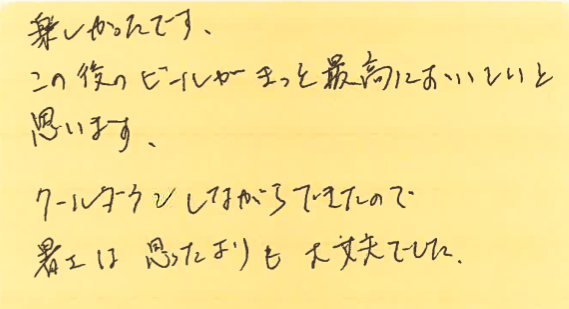 楽しかったです、
この後のビールがきっと最高においしいと
思います、
クールダウンしながらできたので
暑さは思ったよりも大丈夫でした.